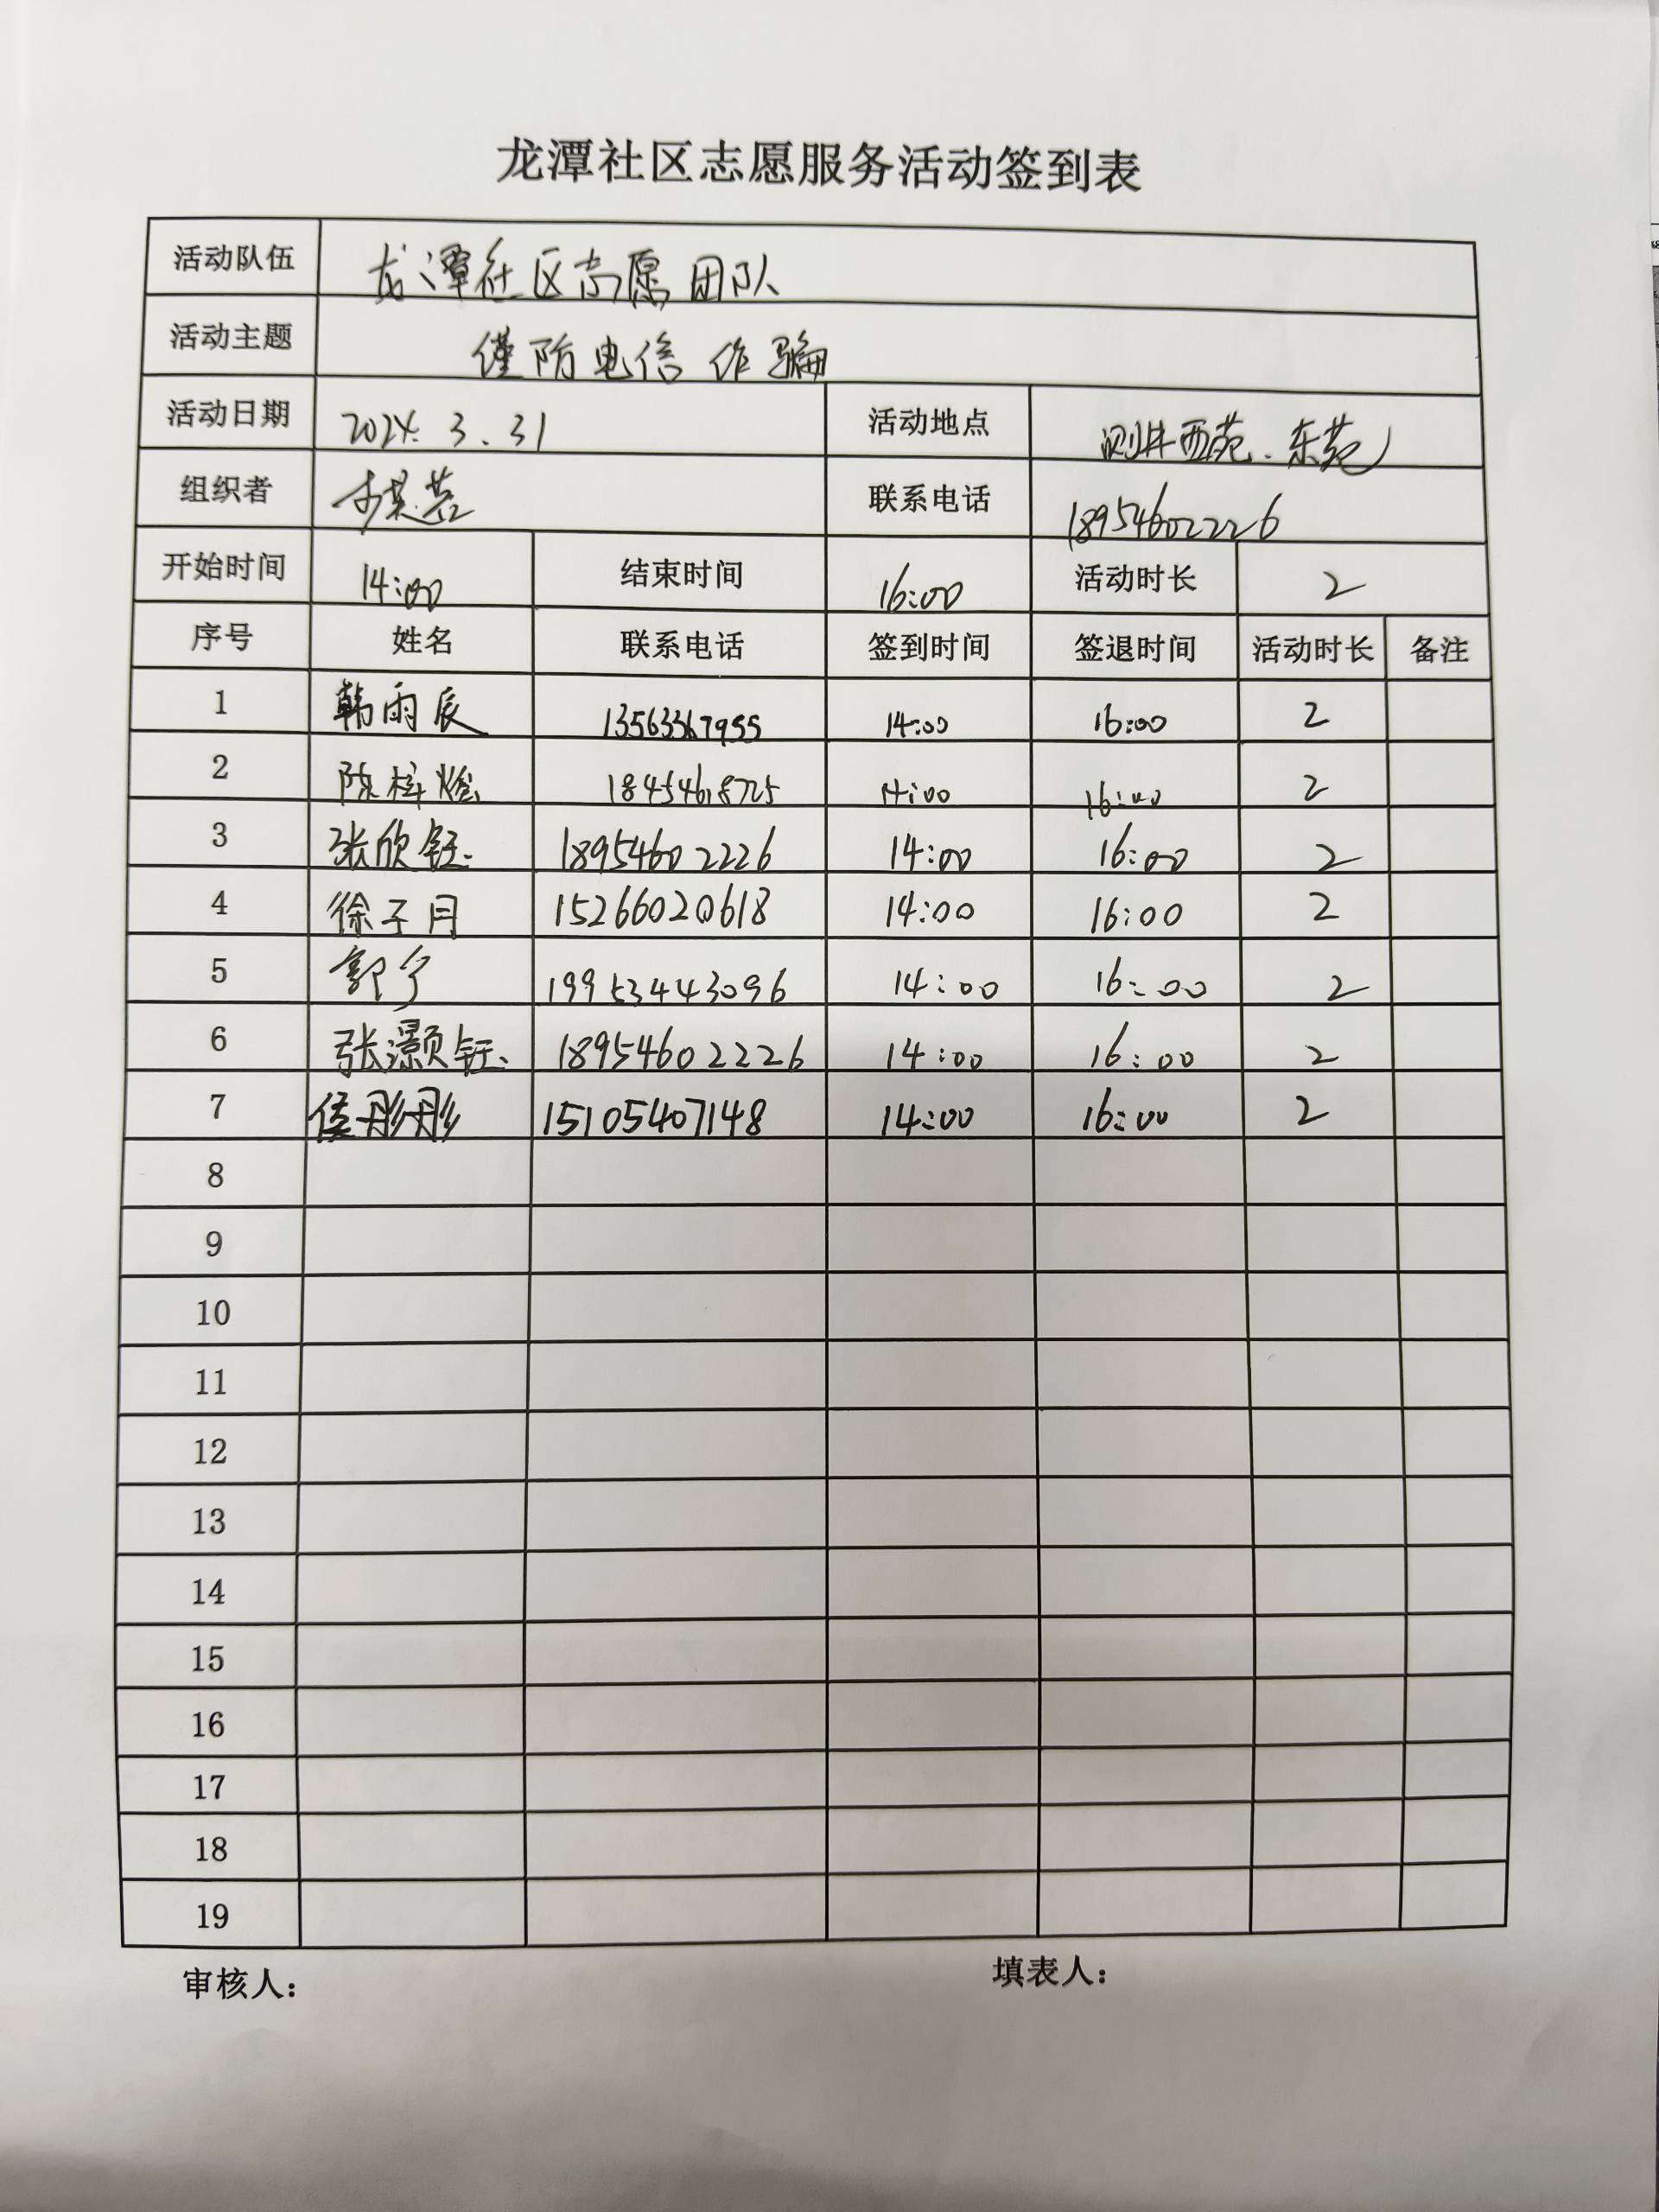 龙潭社区志愿服务活动签到表
活动队伍 龙潭社区志愿团队
活动主题 谨防电信诈骗
活动日期 2024.3.31 活动地点 测井西苑.东苑
组织者 联系电话 18954602226
开始时间 14:00 结束时间 16:00 活动时长 2
序号 姓名 联系电话 签到时间 签退时间 活动时长 备注
1 韩雨辰 13563367955 14:00 16:00 2
2 陈梓 18454618725 14:00 16:00 2
3 张欣钰 18954602226 14:00 16:00 2
4 徐子月 15266020618 14:00 16:00 2
5 郭宁 19953443096 14:00 16:00 2
6 张灏钰 18954602226 14:00 16:00 2
7 侯彤彤 15105407148 14:00 16:00 2
8
9
10
11
12
13
14
15
16
17
18
19
审核人： 填表人：